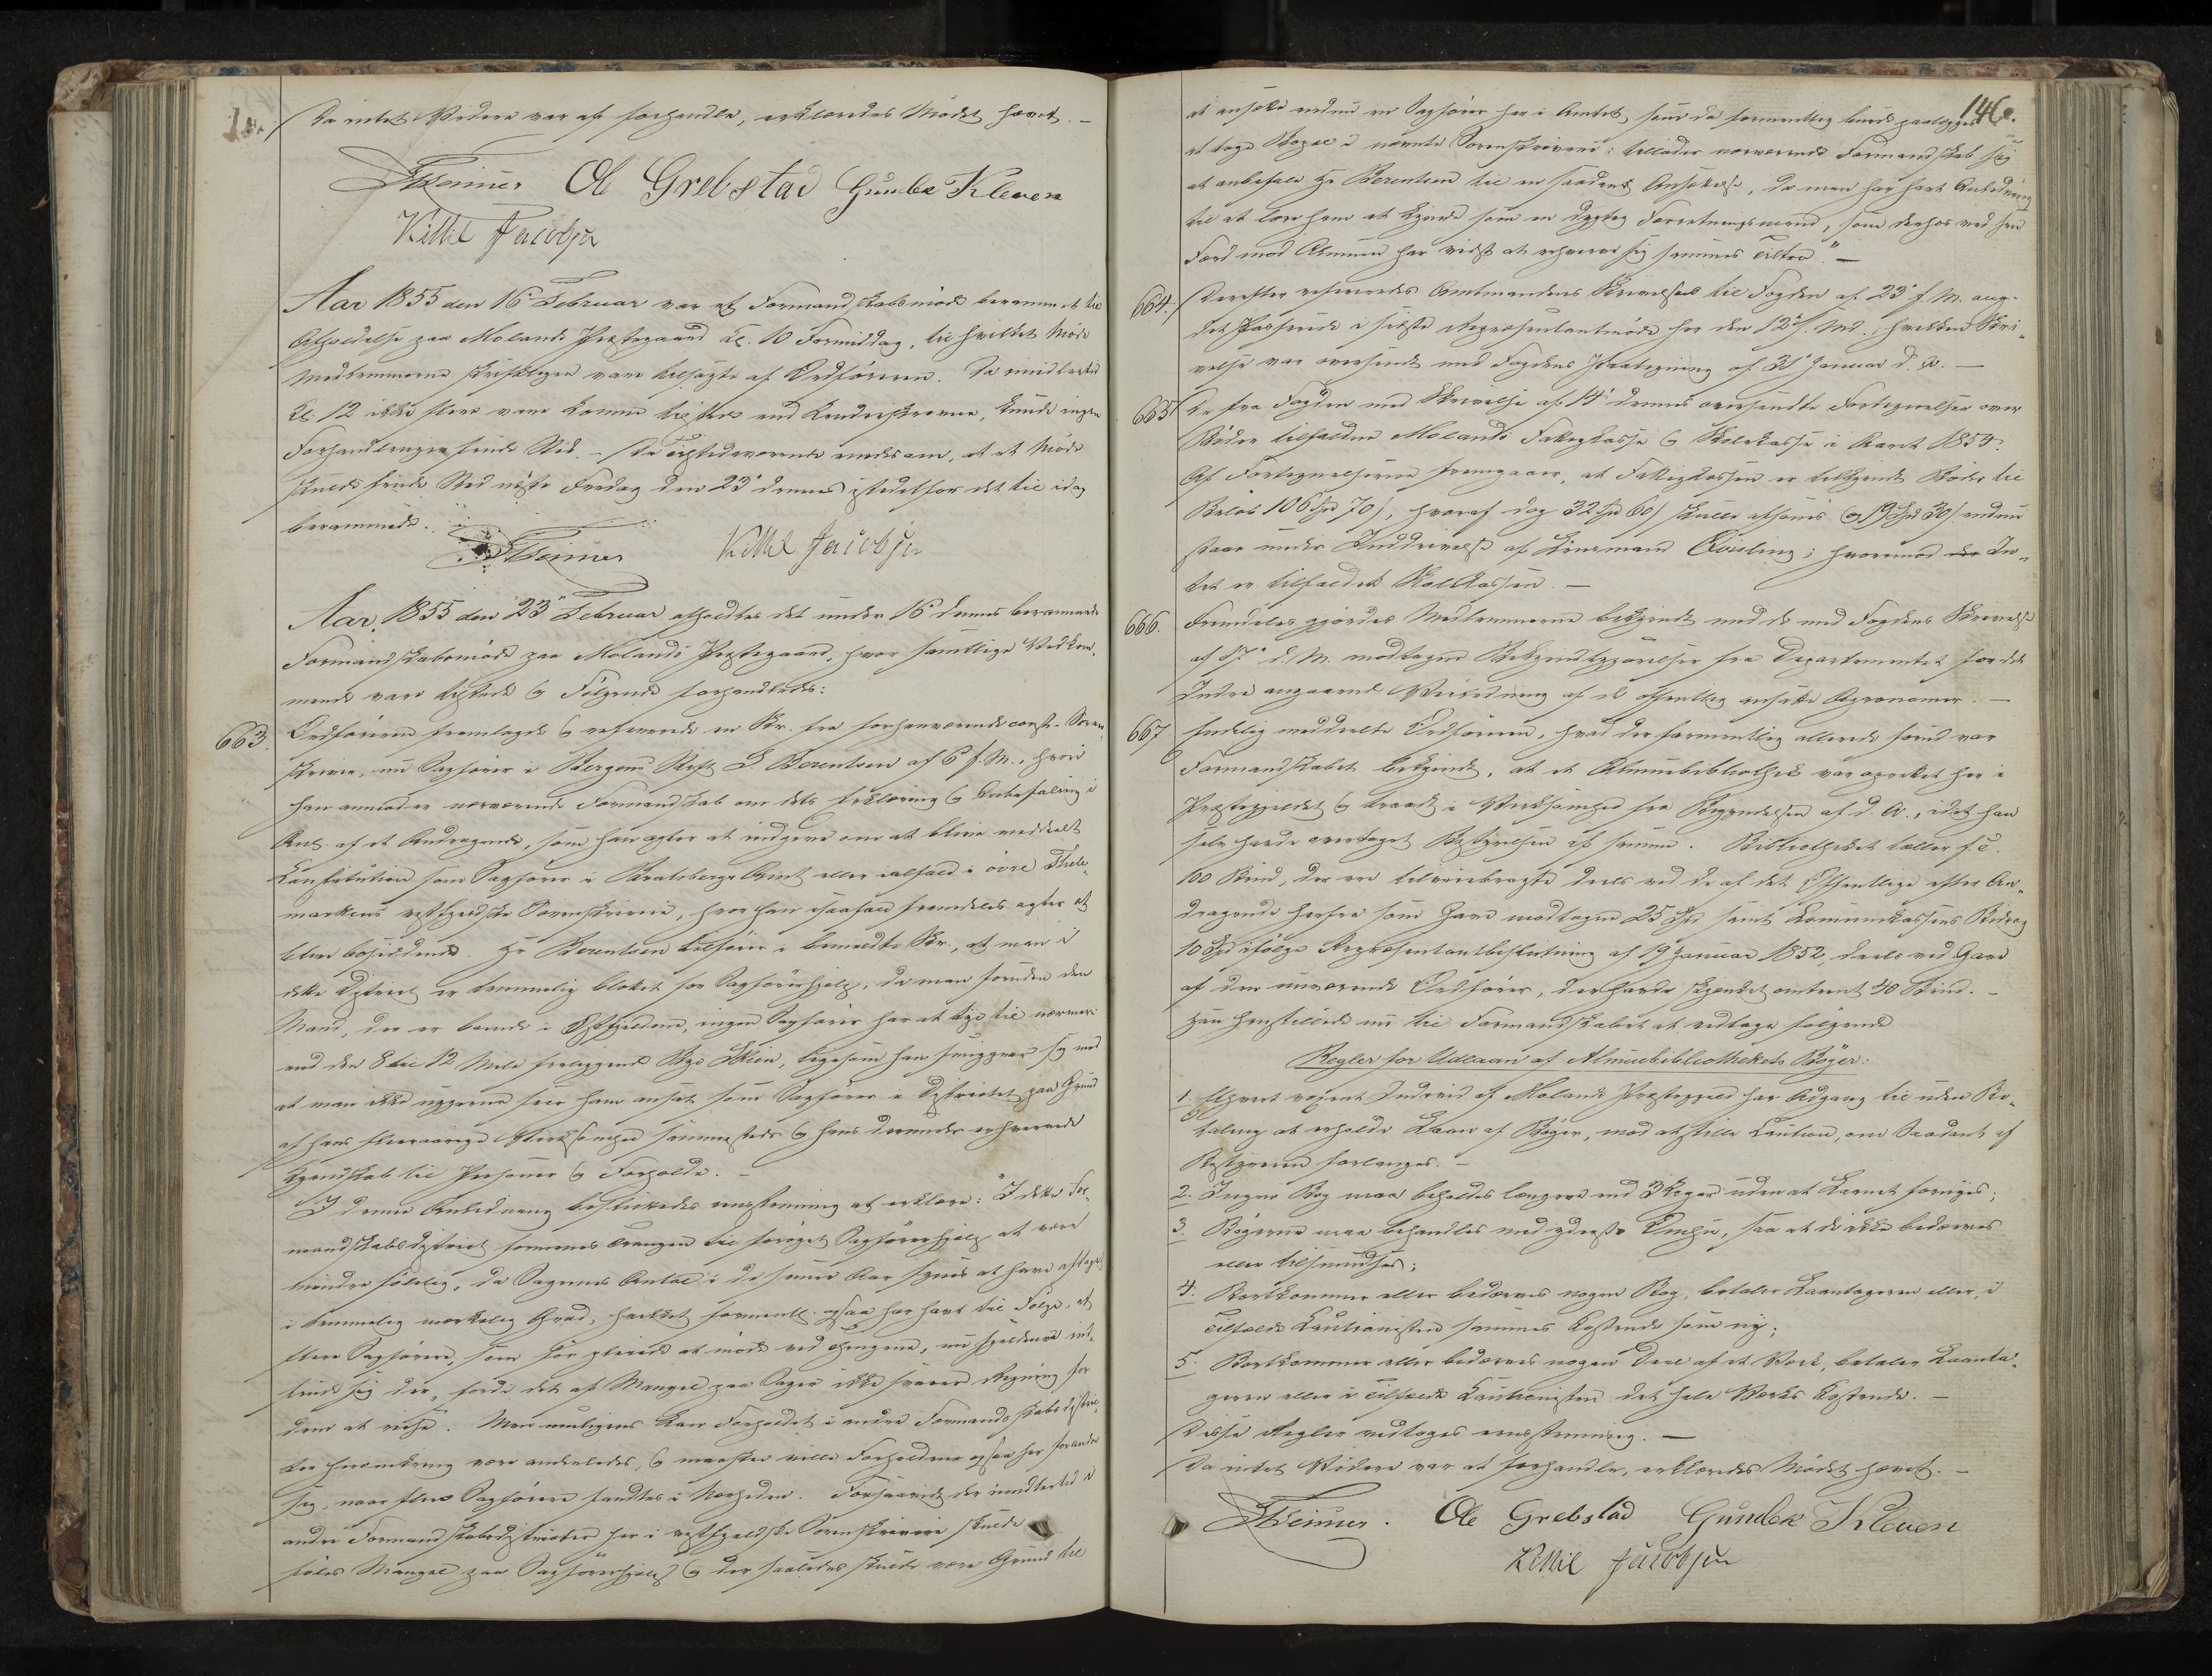 Da intet Videre var at forhandle, erklæredes Mødet hævet. –
Ol Grebstad Gunder Kleven
Kittil Jacobsen
Aar 1855 den 16 Februar var et Formandskabsmøde berammet til
Afholdelse paa Molands Præstegaard Kl. 10 Formiddag, til hvilket Møde
Medlemmerne skriftligen vare tilsagte af Ordføreren. Da imidlertid
Kl. 12 ikke flere vare komne tilstede end Underskrevne, kunde ingen
Forhandlinger finde Sted. – De tilstedeværende enedes om, at et Møde
skulde finde Sted næste Fredag den 23 dennes istedetfor det til idag
berammede.
Kittil Jacobsen
Aar 1855 den 23 Februar afholdtes det under 16 dennes berammede
Formandskabsmøde paa Molands Præstegaard, hvor samtlige Vedkom-
mende vare tilstede og Følgende forhandledes:
663. Ordføreren fremlagde og refererede en Skr. fra forhenværende const. Soren-
skriver, nu Sagfører i Bergens Stift Berentsen af 6 f. M., hvori
han anmoder nærværende Formandskab om dets Erklæring og Anbefaling i
Anl. af et Andragende, som han agter at indgive om at blive meddeelt
Constitution som Sagfører i Bratsbergs Amt eller ialfald i øvre Thele-
markens vestfjeldske Sorenskriverie, hvor han isaafald fremdeles agter at
blive bosiddende. Hr Berentsen tilfører i bemeldte Skr., at man i
dette District er temmelig blottet for Sagførerhjelp, da man foruden den
Mand, der er boende i Østfjeldene, ingen Sagfører har at tye til nærmere
end den 8 til 12 Mile fraliggende Bye Skien, ligesom han smigrer sig med
at man ikke ugjerne seer ham ansat som Sagfører i Districtet paa Grund
af hans fleeraarige Virksomhed sammesteds og hans derunder erhvervede
Kjendskab til Personer og Forholde. –
I denne Anledning besluttedes eenstemmig at erklære: "I dette For-
mandskabsdistrict formenes Trangen til forøget Sagførerhjelp at være
mindre følelig, da Sagernes Antal i de senere Aar synes at have aftaget
i temmelig mærkelig Grad, hvilket formentl. ogsaa har havt til Følge, at
flere Sagførere, som før pleiede at møde ved Thingene, nu sjeldnere ind-
finde sig der, fordi det af Mangel paa Sager ikke svarer Regning for
dem at reise. Men muligens kan Forholdet i andre Formandskabsdistric-
ter heromkring være anderledes, og maaskee ville Forholdene ogsaa her forandre
sig, naar flere Sagførere fandtes i Nærheden. Forsaavidt der imidlertid i
andre Formandskabsdistricter her i vestfjeldske Sorenskriverie skulde
føles Mangel paa Sagførerhjelp og der saaledes skulde være Grund til
146.
at ansætte endnu en Sagfører her i Amtet, som da formentlig burde paalægges
at tage Bopæl i nævnte Sorenskriverie: tillader nærværende Formandskab sig
at anbefale Hr Berentsen til en saadan Ansættelse, da man har havt Anledning
til at lære ham at kjende som en dygtig Forretningsmand, som derhos ved sin
Færd mod Almuen har vidst at erhverve sig sammes Tiltro". –
664. Derefter refereredes Amtmandens Skrivelse til Fogden af 23 f. M. ang.
det Passerede i sidste Repræsentantmøde her den 12 f. Md., hvilken Skri-
velse var oversendt med Fogdens Paategning af 31 Januar d. A. –
665 De fra Fogden med Skrivelse af 14 dennes oversendte Fortegnelser over
Bøder tilfaldne Molands Fattigkasse og Skolekasse i Aaret 1854.
Af Fortegnelserne fremgaaer, at Fattigkassen er tilkjendt Bøder til
Beløb 106 Spd 70 s, hvoraf dog 32 Spd 60 s skulle afsones og 19 Spd 30 s endnu
staae under Inddrivelse af Lensmand Qvisling; hvorimod In-
tet er tilfaldet Skolekassen. –
666. Fremdeles gjordes Medlemmerne bekjendt med de med Fogdens Skrivelse
af 17 d. M. modtagne Bekjendtgjørelser fra Departementet for det
Indre angaaende Veiledning af de offentlig ansatte Agronomer. –
667 Endelig meddeelte Ordføreren, hvad der formentlig allerede forud var
Formandskabet bekjendt, at et Almuebibliothek var oprettet her i
Præstegjeldet og traadt i Virksomhed fra Begyndelsen af d. A., idet han
selv havde overtaget Bestyrelsen af samme. Bibliotheket tæller f. T.
100 Bind, der ere tilveiebragte deels ved de af det Offentlige efter An-
dragende herfra som Gave modtagne 25 Spd samt Communekassens Bidrag
10 Spd ifølge Repræsentantbeslutning af 19 Januar 1852, deels ved Gave
af den nuværende Ordfører, der havde skjænket omtrent 40 Bind. –
Han henstillede nu til Formandskabet at vedtage følgende
Regler for Udlaan af Almuebibliothekets Bøger:
1. Ethvert voxent Individ af Molands Præstegjeld har Adgang til uden Be-
taling at erholde Laan af Bøger, mod at stille Caution, om Saadant af
Bestyreren forlanges. –
2. Ingen Bog maa beholdes længere end 3 Uger uden at Laanet fornyes;
3. Bøgerne maa behandles med yderste Omhu, saa at de ikke bedærves
eller tilsmudses;
4. Bortkommer eller bedærves nogen Bog, betaler Laantageren eller, i
Tilfælde Cautionisten sammes Kostende som ny;
5. Bortkommer eller bedærves nogen Deel af et Værk, betaler Laanta-
geren eller i Tilfælde Cautionisten det hele Værks Kostende. –
Disse Regler vedtoges eenstemmig. –
Da intet Videre var at forhandle, erklæredes Mødet hævet. –
Ole Grebstad Gunder Kleven
Kittil Jacobsen